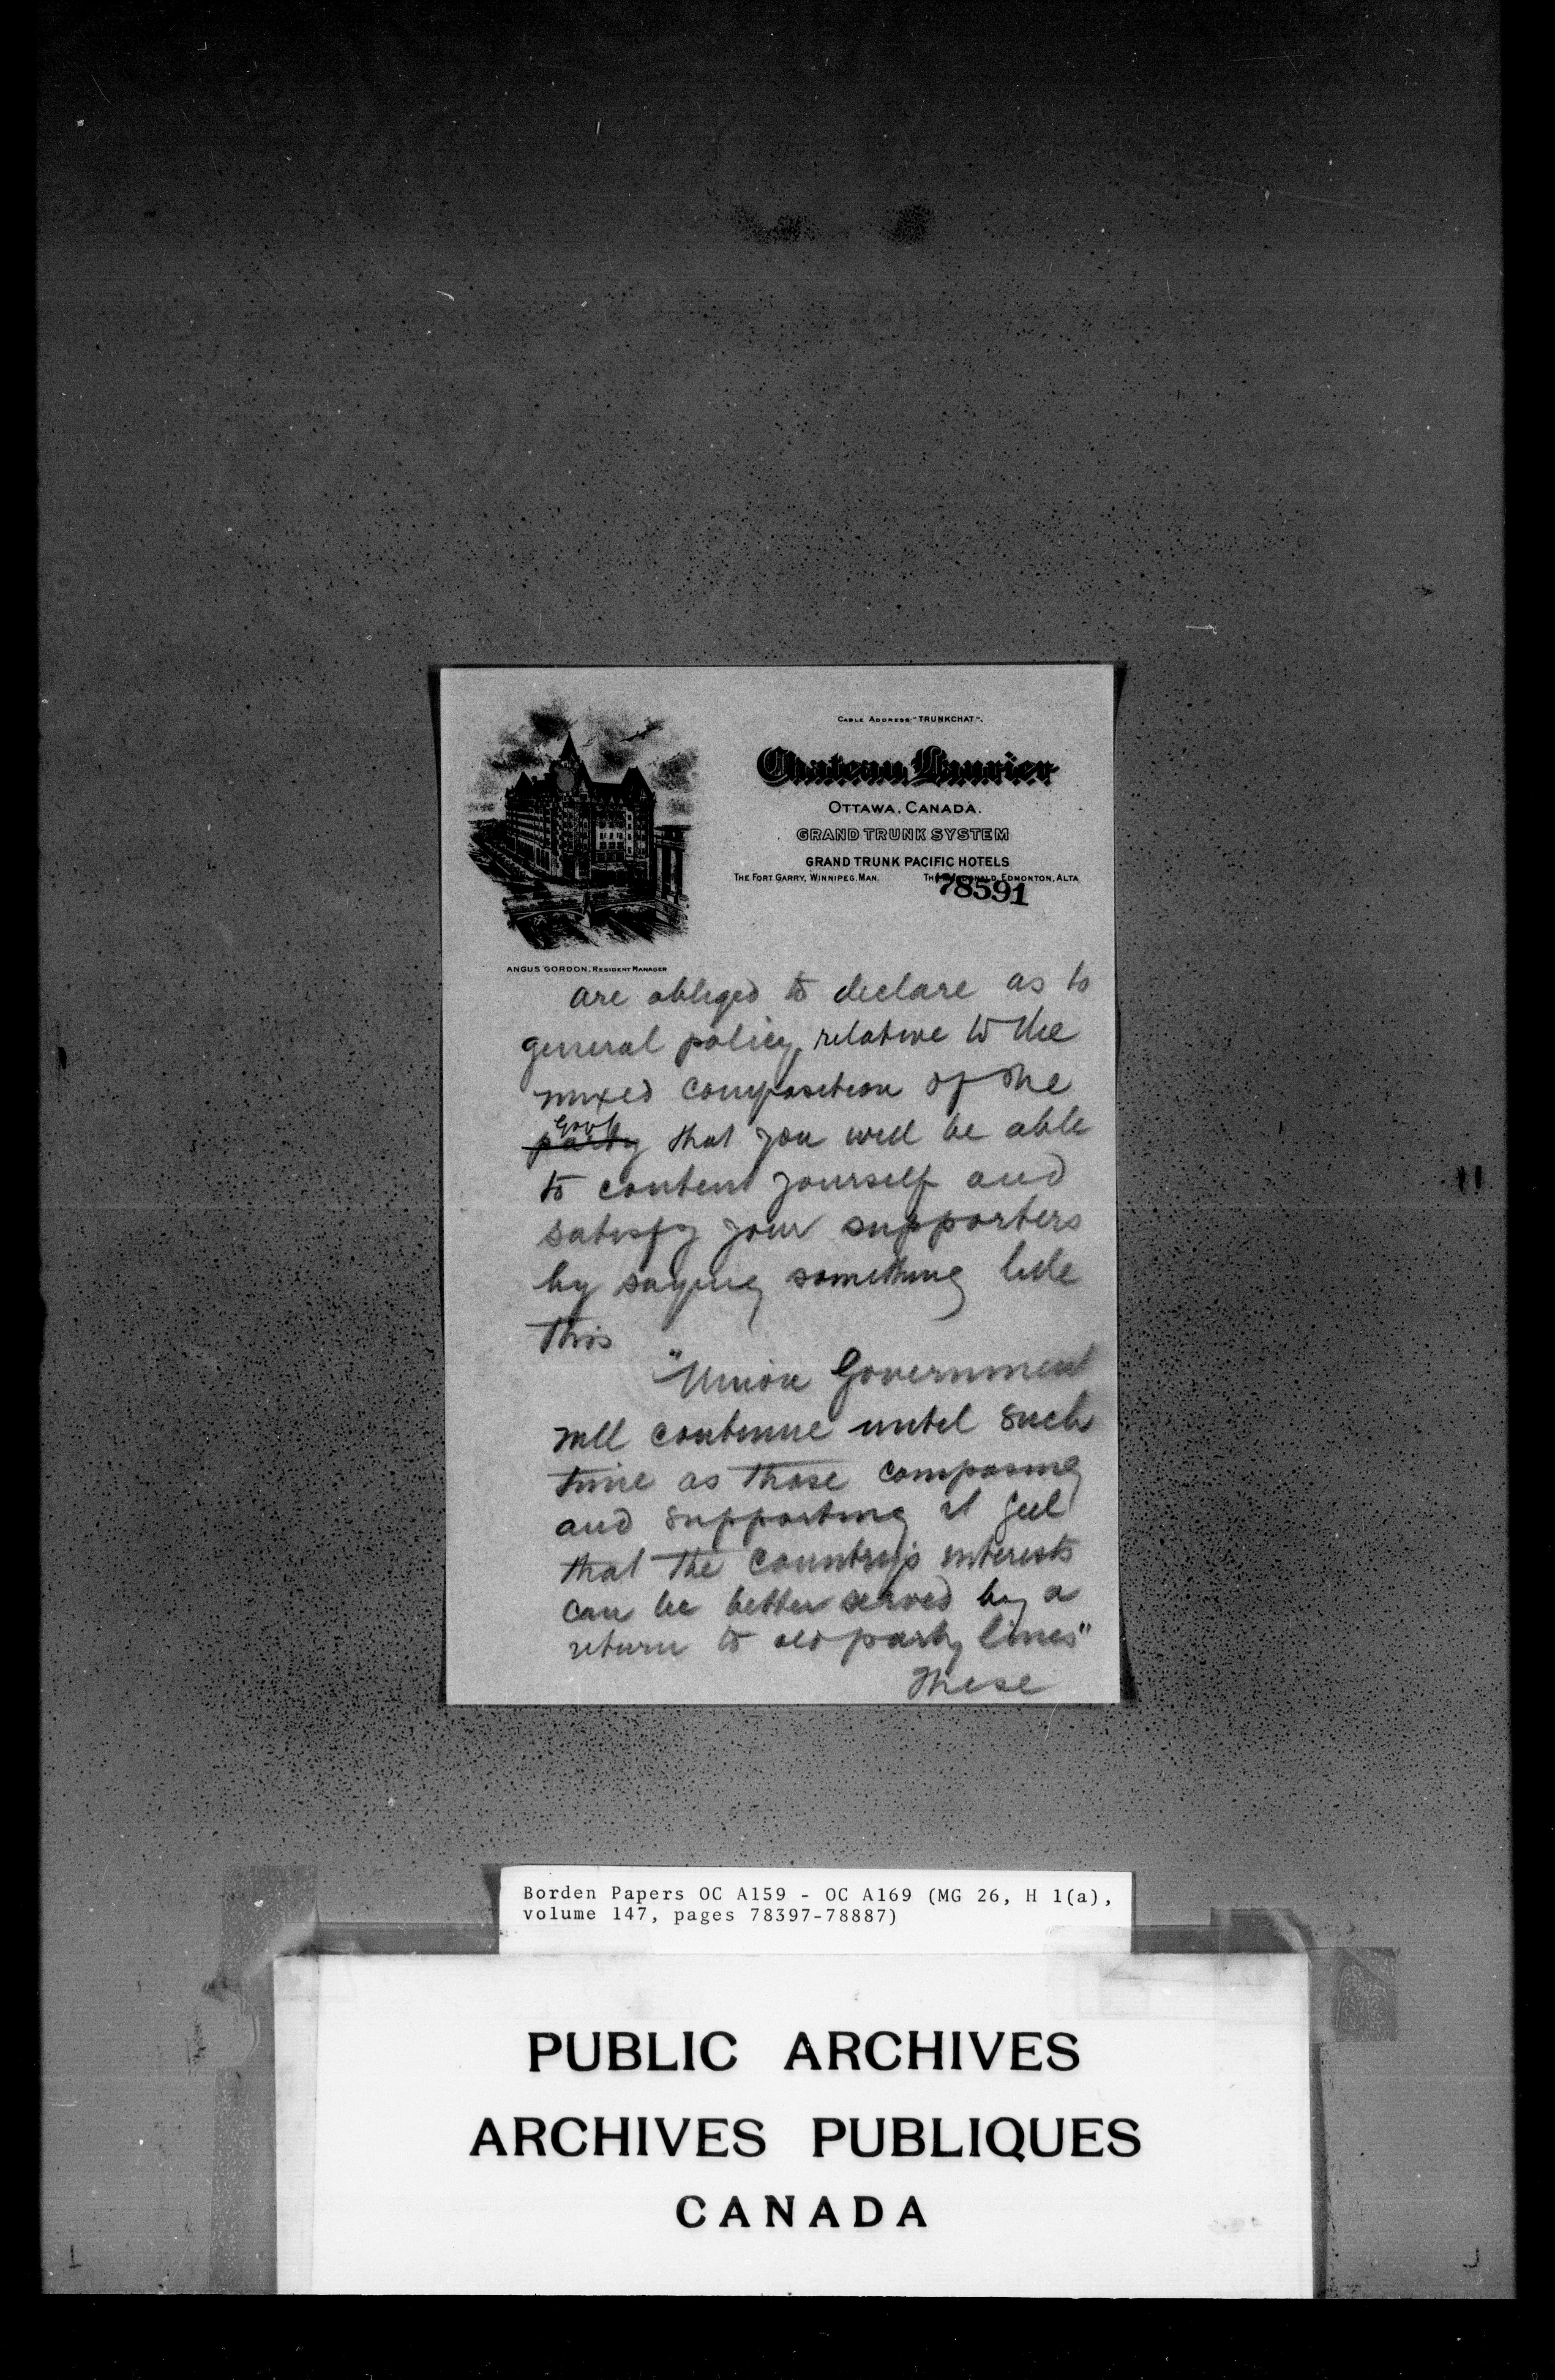 CABLE ADDRESS "TRUNKCHAT".
Chateau Laurier
OTTAWA, CANADA.
GRAND TRUNK SYSTEM
GRAND TRUNK PACIFIC HOTELS
THE FORT GARRY, WINNIPEG, MAN. THE MACDONALD, EDMONTON, ALTA
78591
ANGUS GORDON, RESIDENT MANAGER
are obliged to declare as to
general policy, relative to the
mixed composition of the
Govt
party that you will be able
to content yourself and
satisfy your supporters
by saying something like
this
"Union Government
will continue until such
time as those composing
and supporting it feel
that the country's interests
can be better served by a
return to old party lines"
These
Borden Papers OC A159 - OC A169 (MG 26, H 1(a),
volume 147, pages 78397-78887)
PUBLIC ARCHIVES
ARCHIVES PUBLIQUES
CANADA